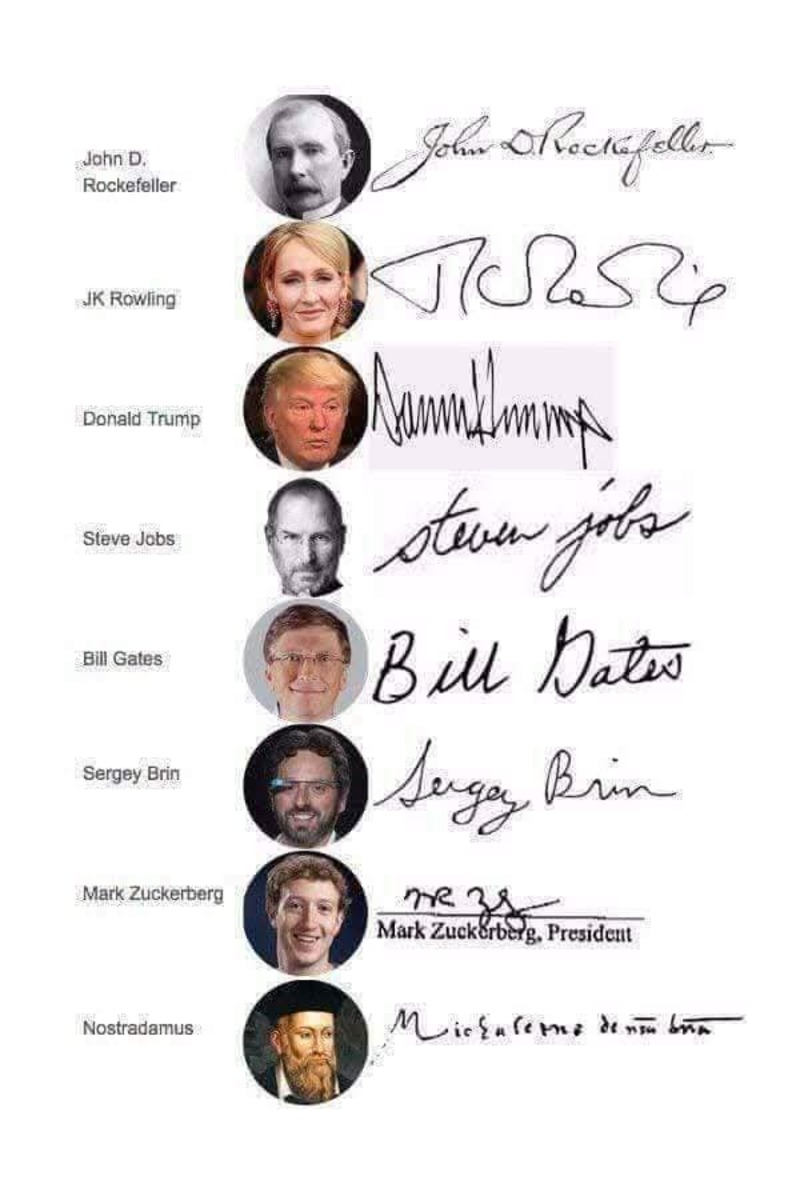 John D.
Rockefeller
John D. Rockefeller
JK Rowling
Donald Trump
Steve Jobs
steven jobs
Bill Gates
Bill Gates
Sergey Brin
Sergey Brin
Mark Zuckerberg
Mark Zuckerberg, President
Nostradamus